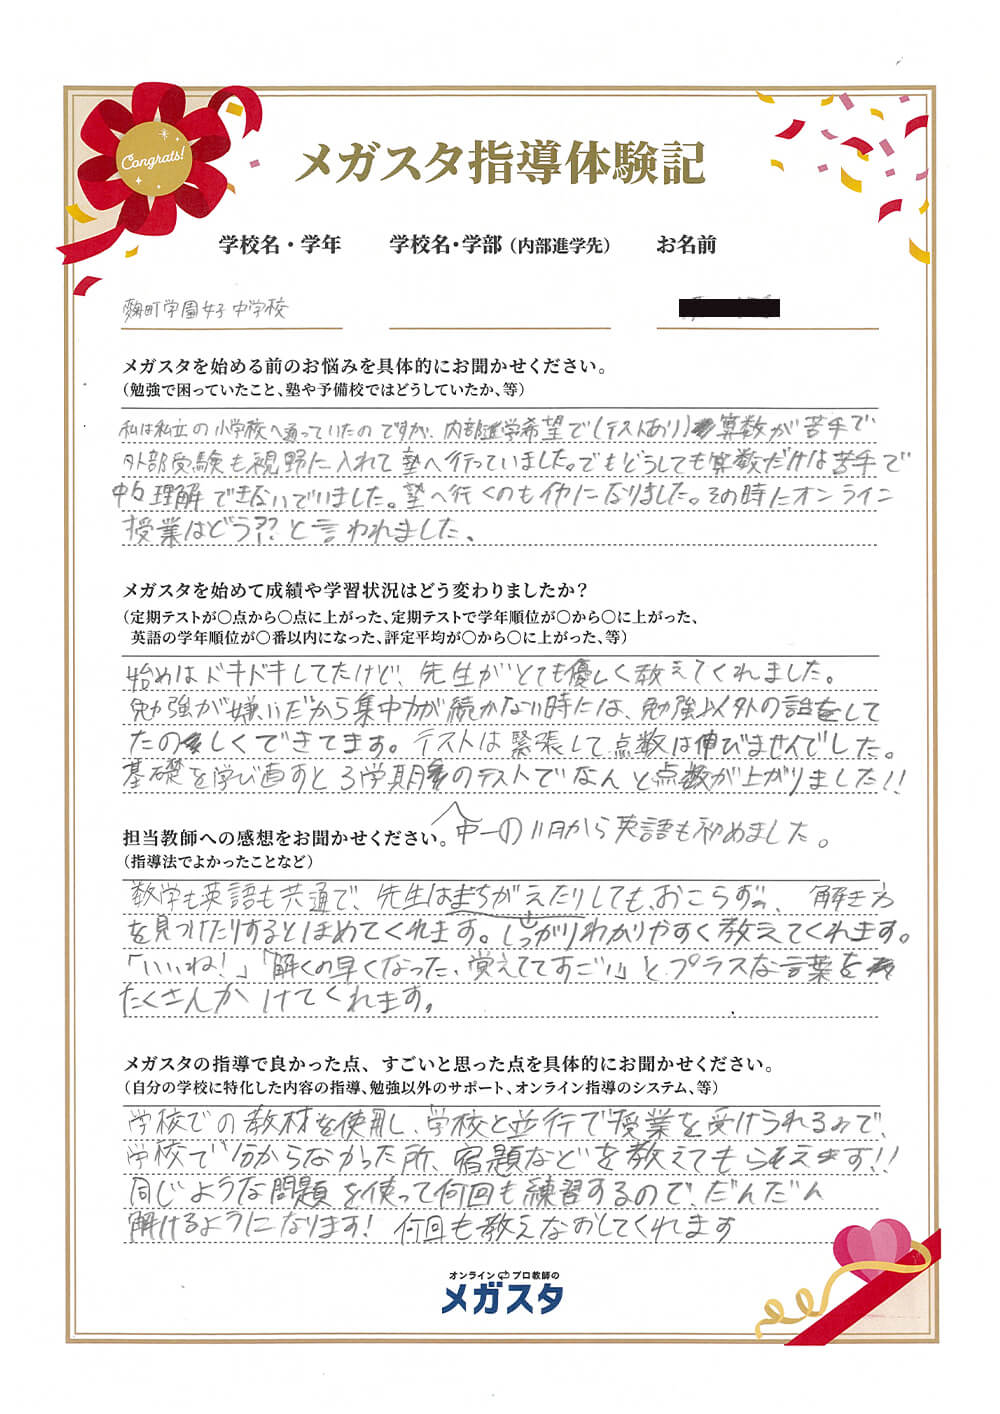 Congrats!
メガスタ指導体験記
学校名・学年 学校名・学部（内部進学先） お名前
麹町学園女子中学校
メガスタを始める前のお悩みを具体的にお聞かせください。
（勉強で困っていたこと、塾や予備校ではどうしていたか、等）
私は私立の小学校へ通っていたのですが、内部進学希望で(テストあり)算数が苦手で
外部受験も視野に入れて塾へ行っていました。でもどうしても算数だけは苦手で
中々理解できないでいました。塾へ行くのもイヤになりました。その時にオンライン
授業はどう??と言われました、
メガスタを始めて成績や学習状況はどう変わりましたか？
（定期テストが〇点から〇点に上がった、定期テストで学年順位が〇から〇に上がった、
英語の学年順位が〇番以内になった、評定平均が〇から〇に上がった、等）
始めはドキドキしてたけど、先生がとても優しく教えてくれました。
勉強が嫌いだから集中力が続かない時には、勉強以外の話をして
たのしくできてます。テストは緊張して点数は伸びませんでした。
基礎を学び直すと3学期のテストでなんと点数が上がりました!!
中一の11月から英語も初めました。
担当教師への感想をお聞かせください。
（指導法でよかったことなど）
数学も英語も共通で、先生はまちがえたりしても、おこらず、解き方
を見つけたりするとほめてくれます。しっかりわかりやすく教えてくれます。
「いいね!」「解くの早くなった、覚えててすごい」とプラスな言葉を
たくさんかけてくれます。
メガスタの指導で良かった点、すごいと思った点を具体的にお聞かせください。
（自分の学校に特化した内容の指導、勉強以外のサポート、オンライン指導のシステム、等）
学校での教材を使用し、学校と並行で授業を受けられるので、
学校で分からなかった所、宿題などを教えてもらえます!!
同じような問題を使って何回も練習するので、だんだん
解けるようになります! 何回も教えなおしてくれます
オンライン プロ教師の
メガスタ